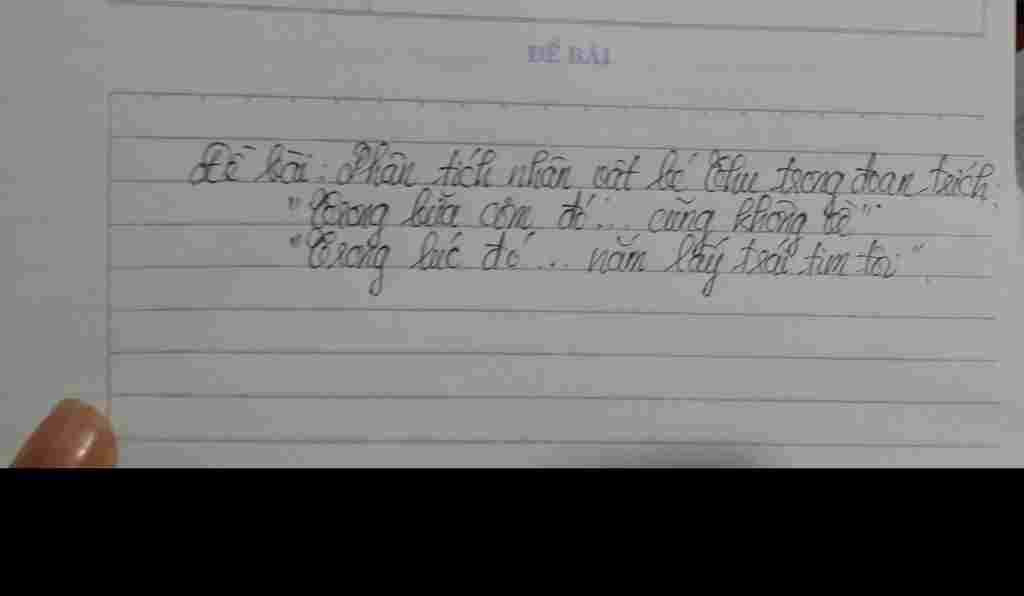 ĐỀ BÀI
Đề bài: Phân tích nhân vật bé Thu trong đoạn trích:
"Trong bữa cơm đó... cũng không tề"
"Trong lúc đó... nắm lấy trái tim tôi".